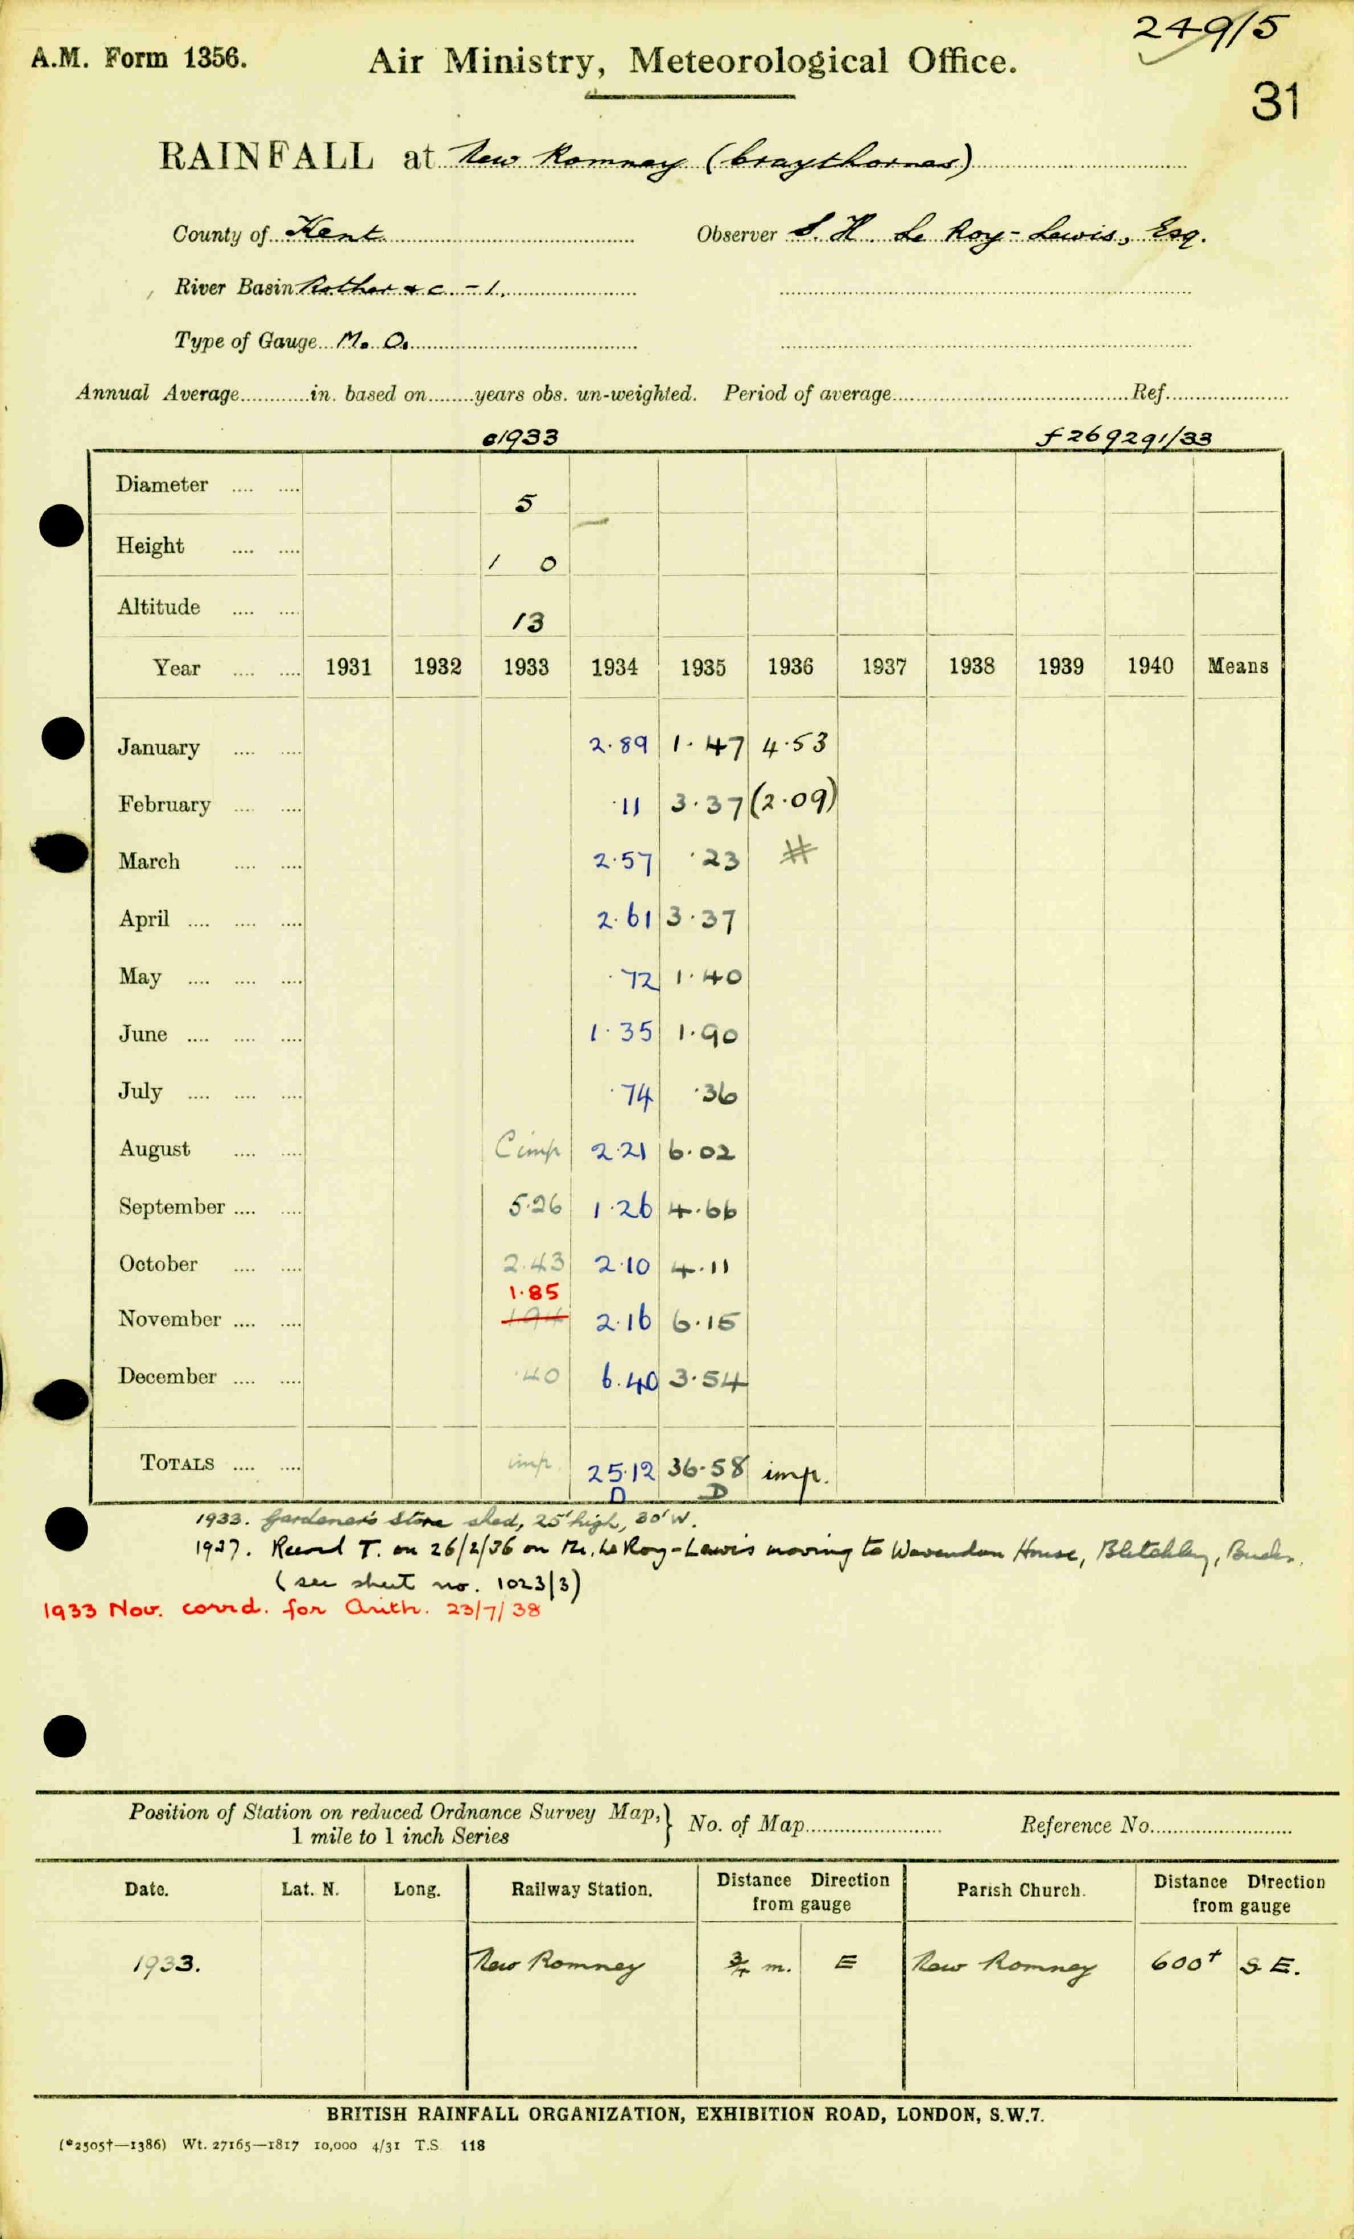 249/5
A.M. Form 1356. Air Ministry, Meteorological Office.
31
RAINFALL at New Romney (Craythornes)
County of Kent Observer S. H. Le Roy-Lewis, Esq.
River Basin Rother & c. -1.
Type of Gauge M. O.
Annual Average in. based on years obs. un-weighted. Period of average Ref.
c1933 f269291/33
Diameter 5
Height 1 0
Altitude 13
Year 1931 1932 1933 1934 1935 1936 1937 1938 1939 1940 Means
January 2.89 1.47 4.53
February .11 3.37 (2.09)
March 2.57 .23 #
April 2.61 3.37
May .72 1.40
June 1.35 1.90
July .74 .36
August C imp 2.21 6.02
September 5.26 1.26 4.66
October 2.43 2.10 4.11
1.85
November 194 2.16 6.15
December .40 6.40 3.54
TOTALS imp. 25.12 36.58 imp.
D D
1933. Gardener's Store shed, 25' high, 30' W.
1937. Record T. on 26/2/36 on Mr. Le Roy-Lewis moving to Wavendon House, Bletchley, Bucks.
(see sheet no. 1023/3)
1933 Nov. corrd. for Arith. 23/7/38
Position of Station on reduced Ordnance Survey Map, } No. of Map Reference No.
1 mile to 1 inch Series
Date. Lat. N. Long. Railway Station. Distance Direction from gauge Parish Church. Distance Direction from gauge
1933. New Romney 3/4 m. E New Romney 600+ S E.
BRITISH RAINFALL ORGANIZATION, EXHIBITION ROAD, LONDON, S.W.7.
(*2505†—1386) Wt. 27165—1817 10,000 4/31 T.S. 118